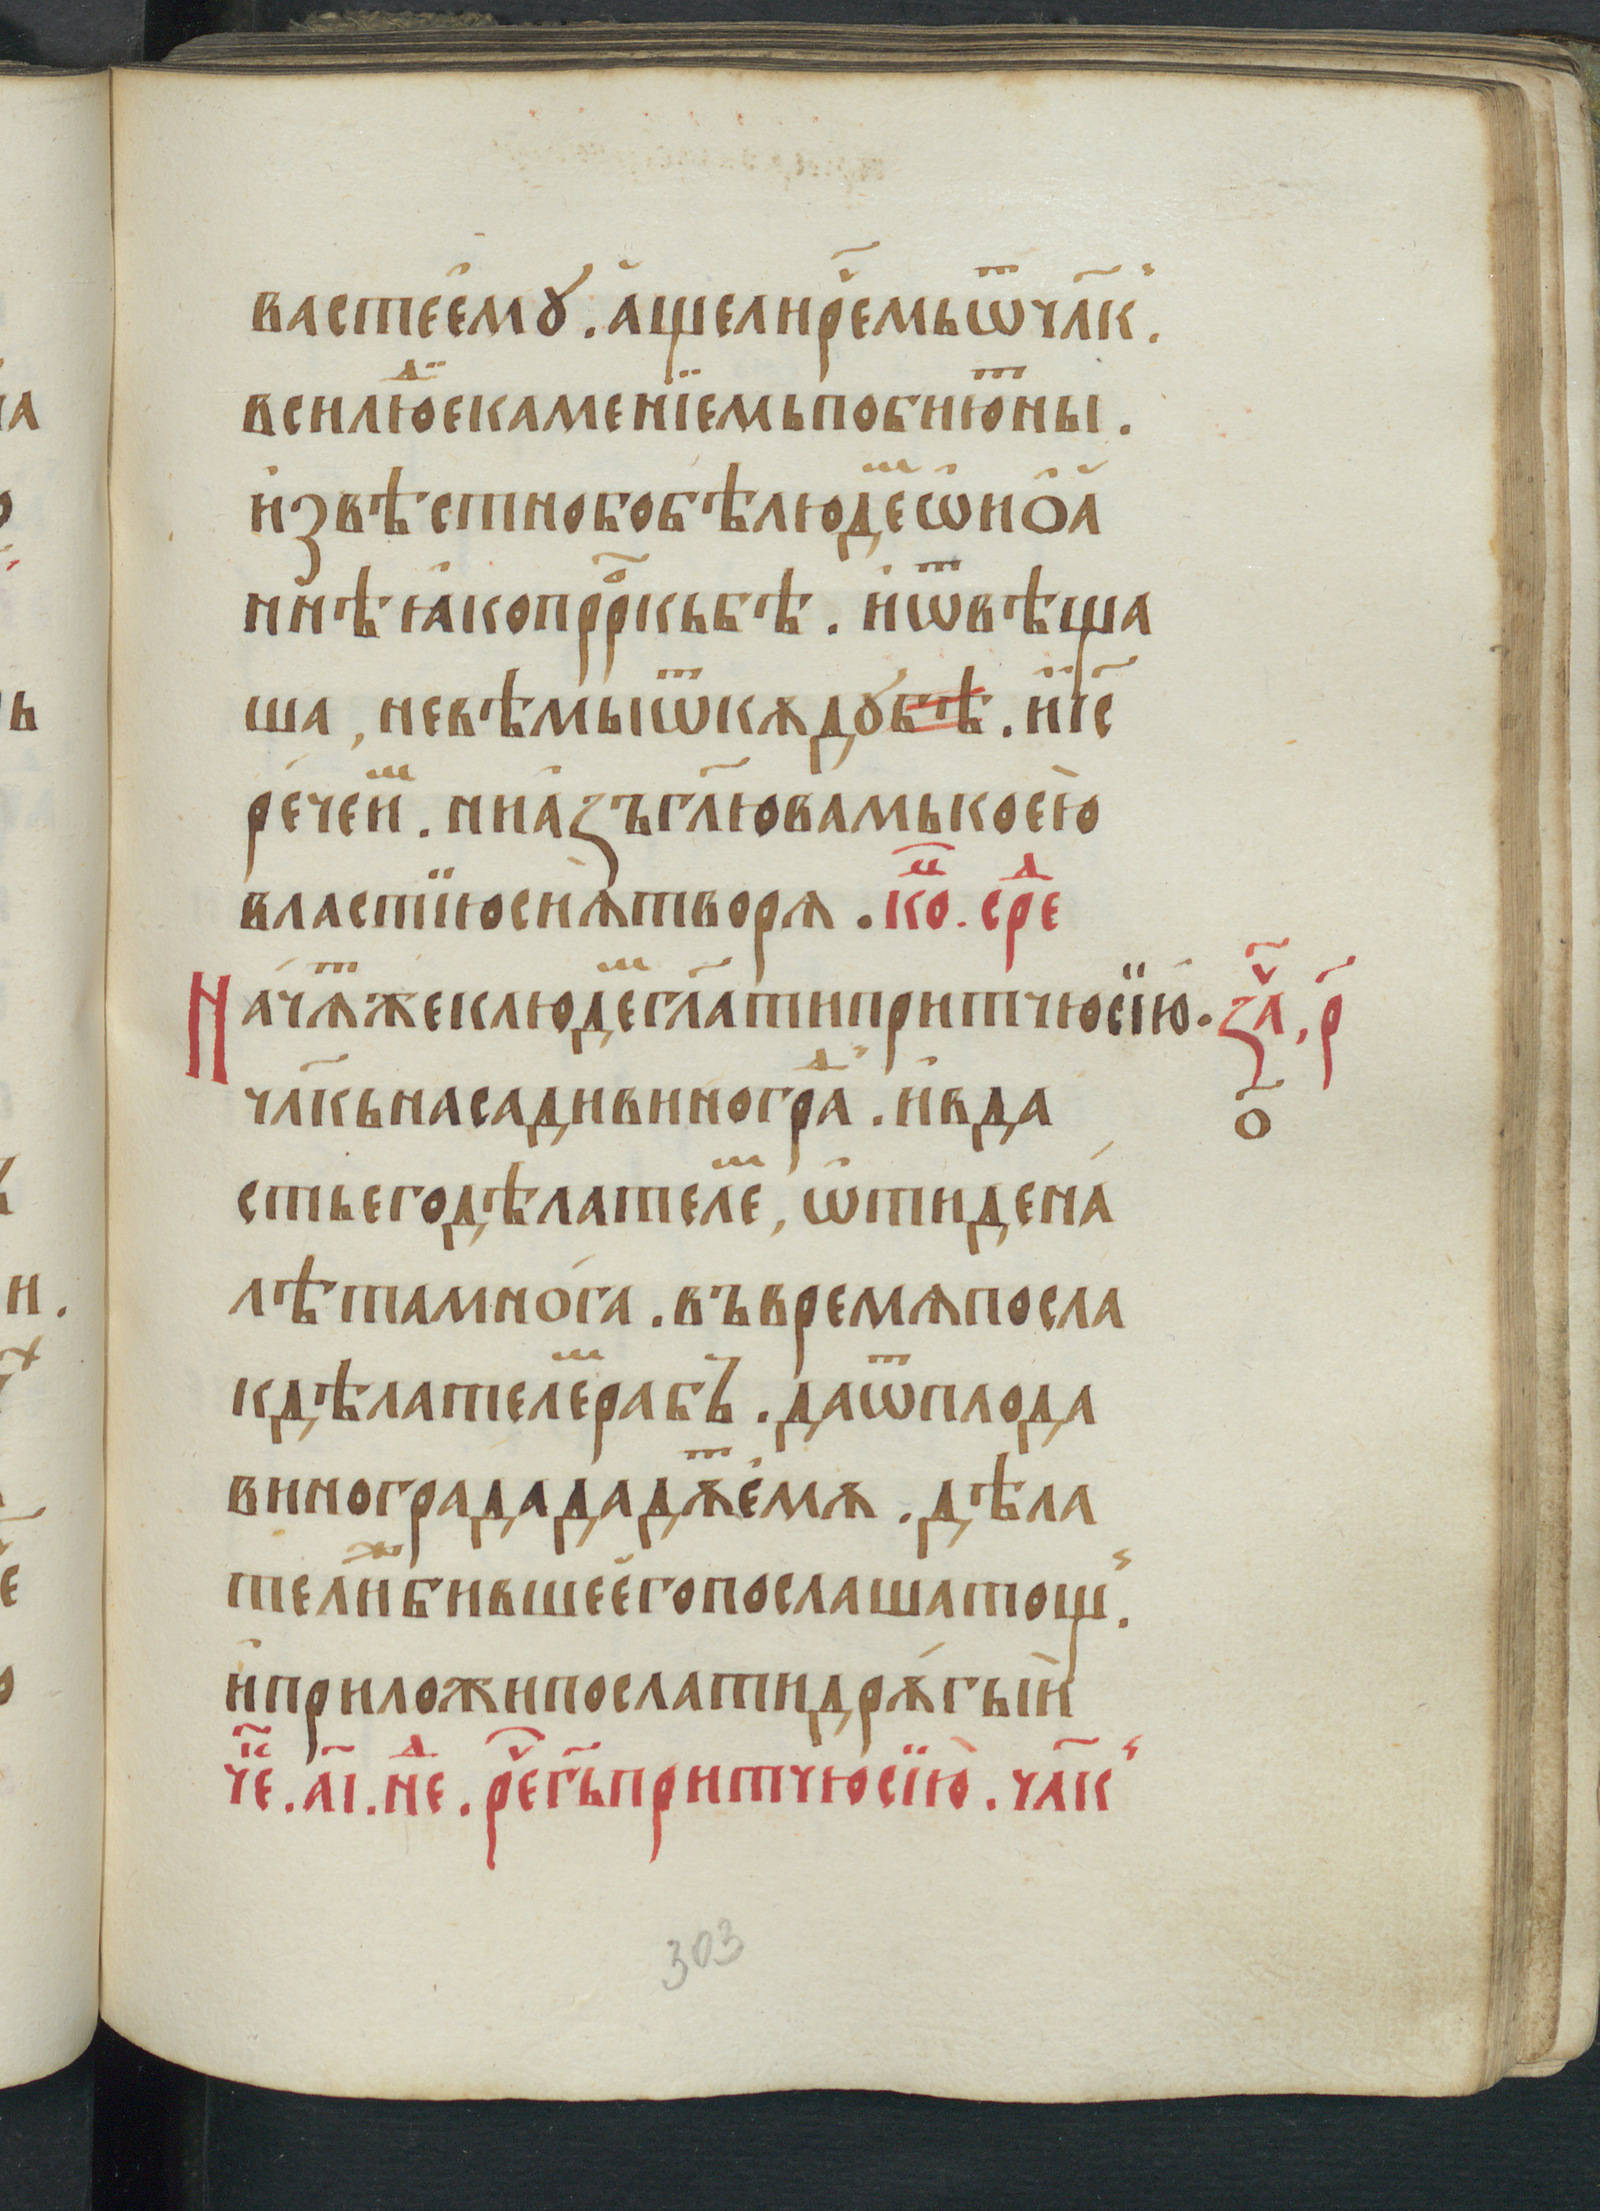 вастеемꙋ. аще ли рече́мь ѿ чл҃к.
вси люⷣе каменїемь побиюⷮ ны.
извѣстно бо бѣ людеⷨ ѡ иоа
ннѣ ꙗко прⷪ҇ркь бѣ. и ѿвѣща
ша, не вѣмы ѿ кѫдꙋ бѣ. и і҃с
рече иⷨ. ни азъ гл҃ю вамь коею
властїю сиѧ творѧ. коⷰ. среⷣ
Начѧⷮ же к людеⷨ гл҃ати притчю сїю.
зⷱ҇а, р
чл҃кь насади виногра́ⷣ. и вда
сть его дѣлателеⷨ, ѡтиде на
лѣта многа. въ времѧ посла
к дѣлателеⷨ рабъ. да ѿ плода
винограда дадѧⷮ емѫ. дѣла
о
телиⷤ бивше его послаша тощ.
и приложи послати дрѫгыи
чеⷦ. а҃і. неⷣ. рече г҃ь притчю сїю. чл҃к
303